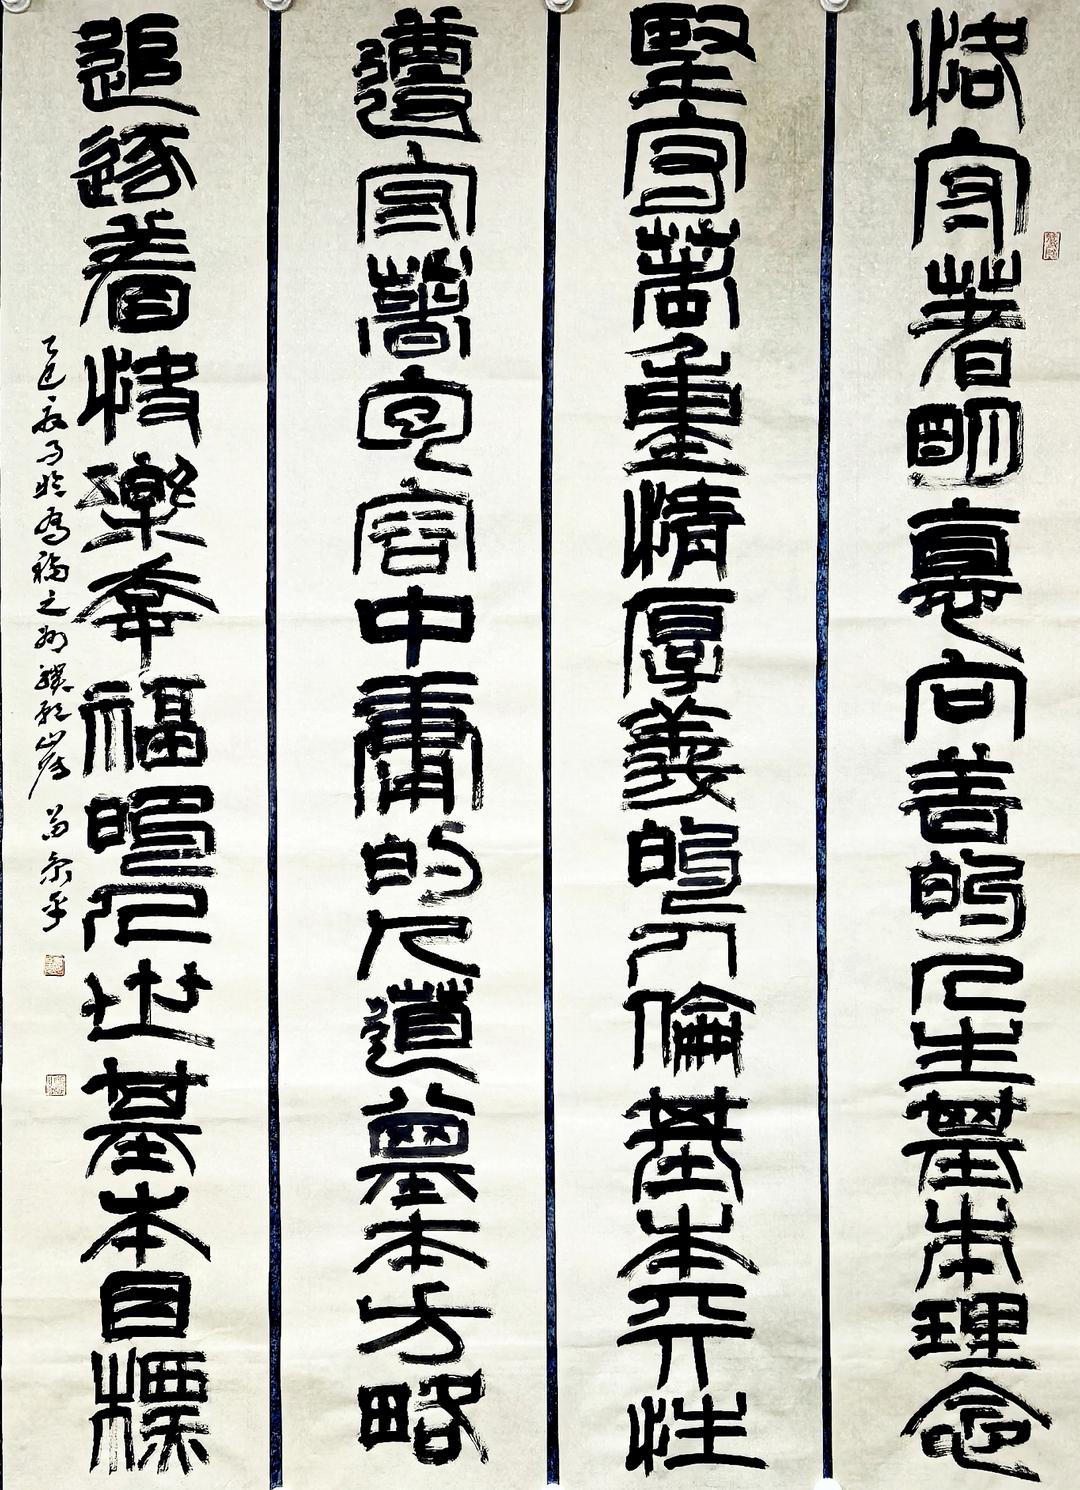 恪守着明德向善的人生基本理念
坚守着重情厚義的人倫基本天性
遵守着寬容中庸的人道基本方略
追逐着快樂幸福的人世基本目標
乙巳
福之州